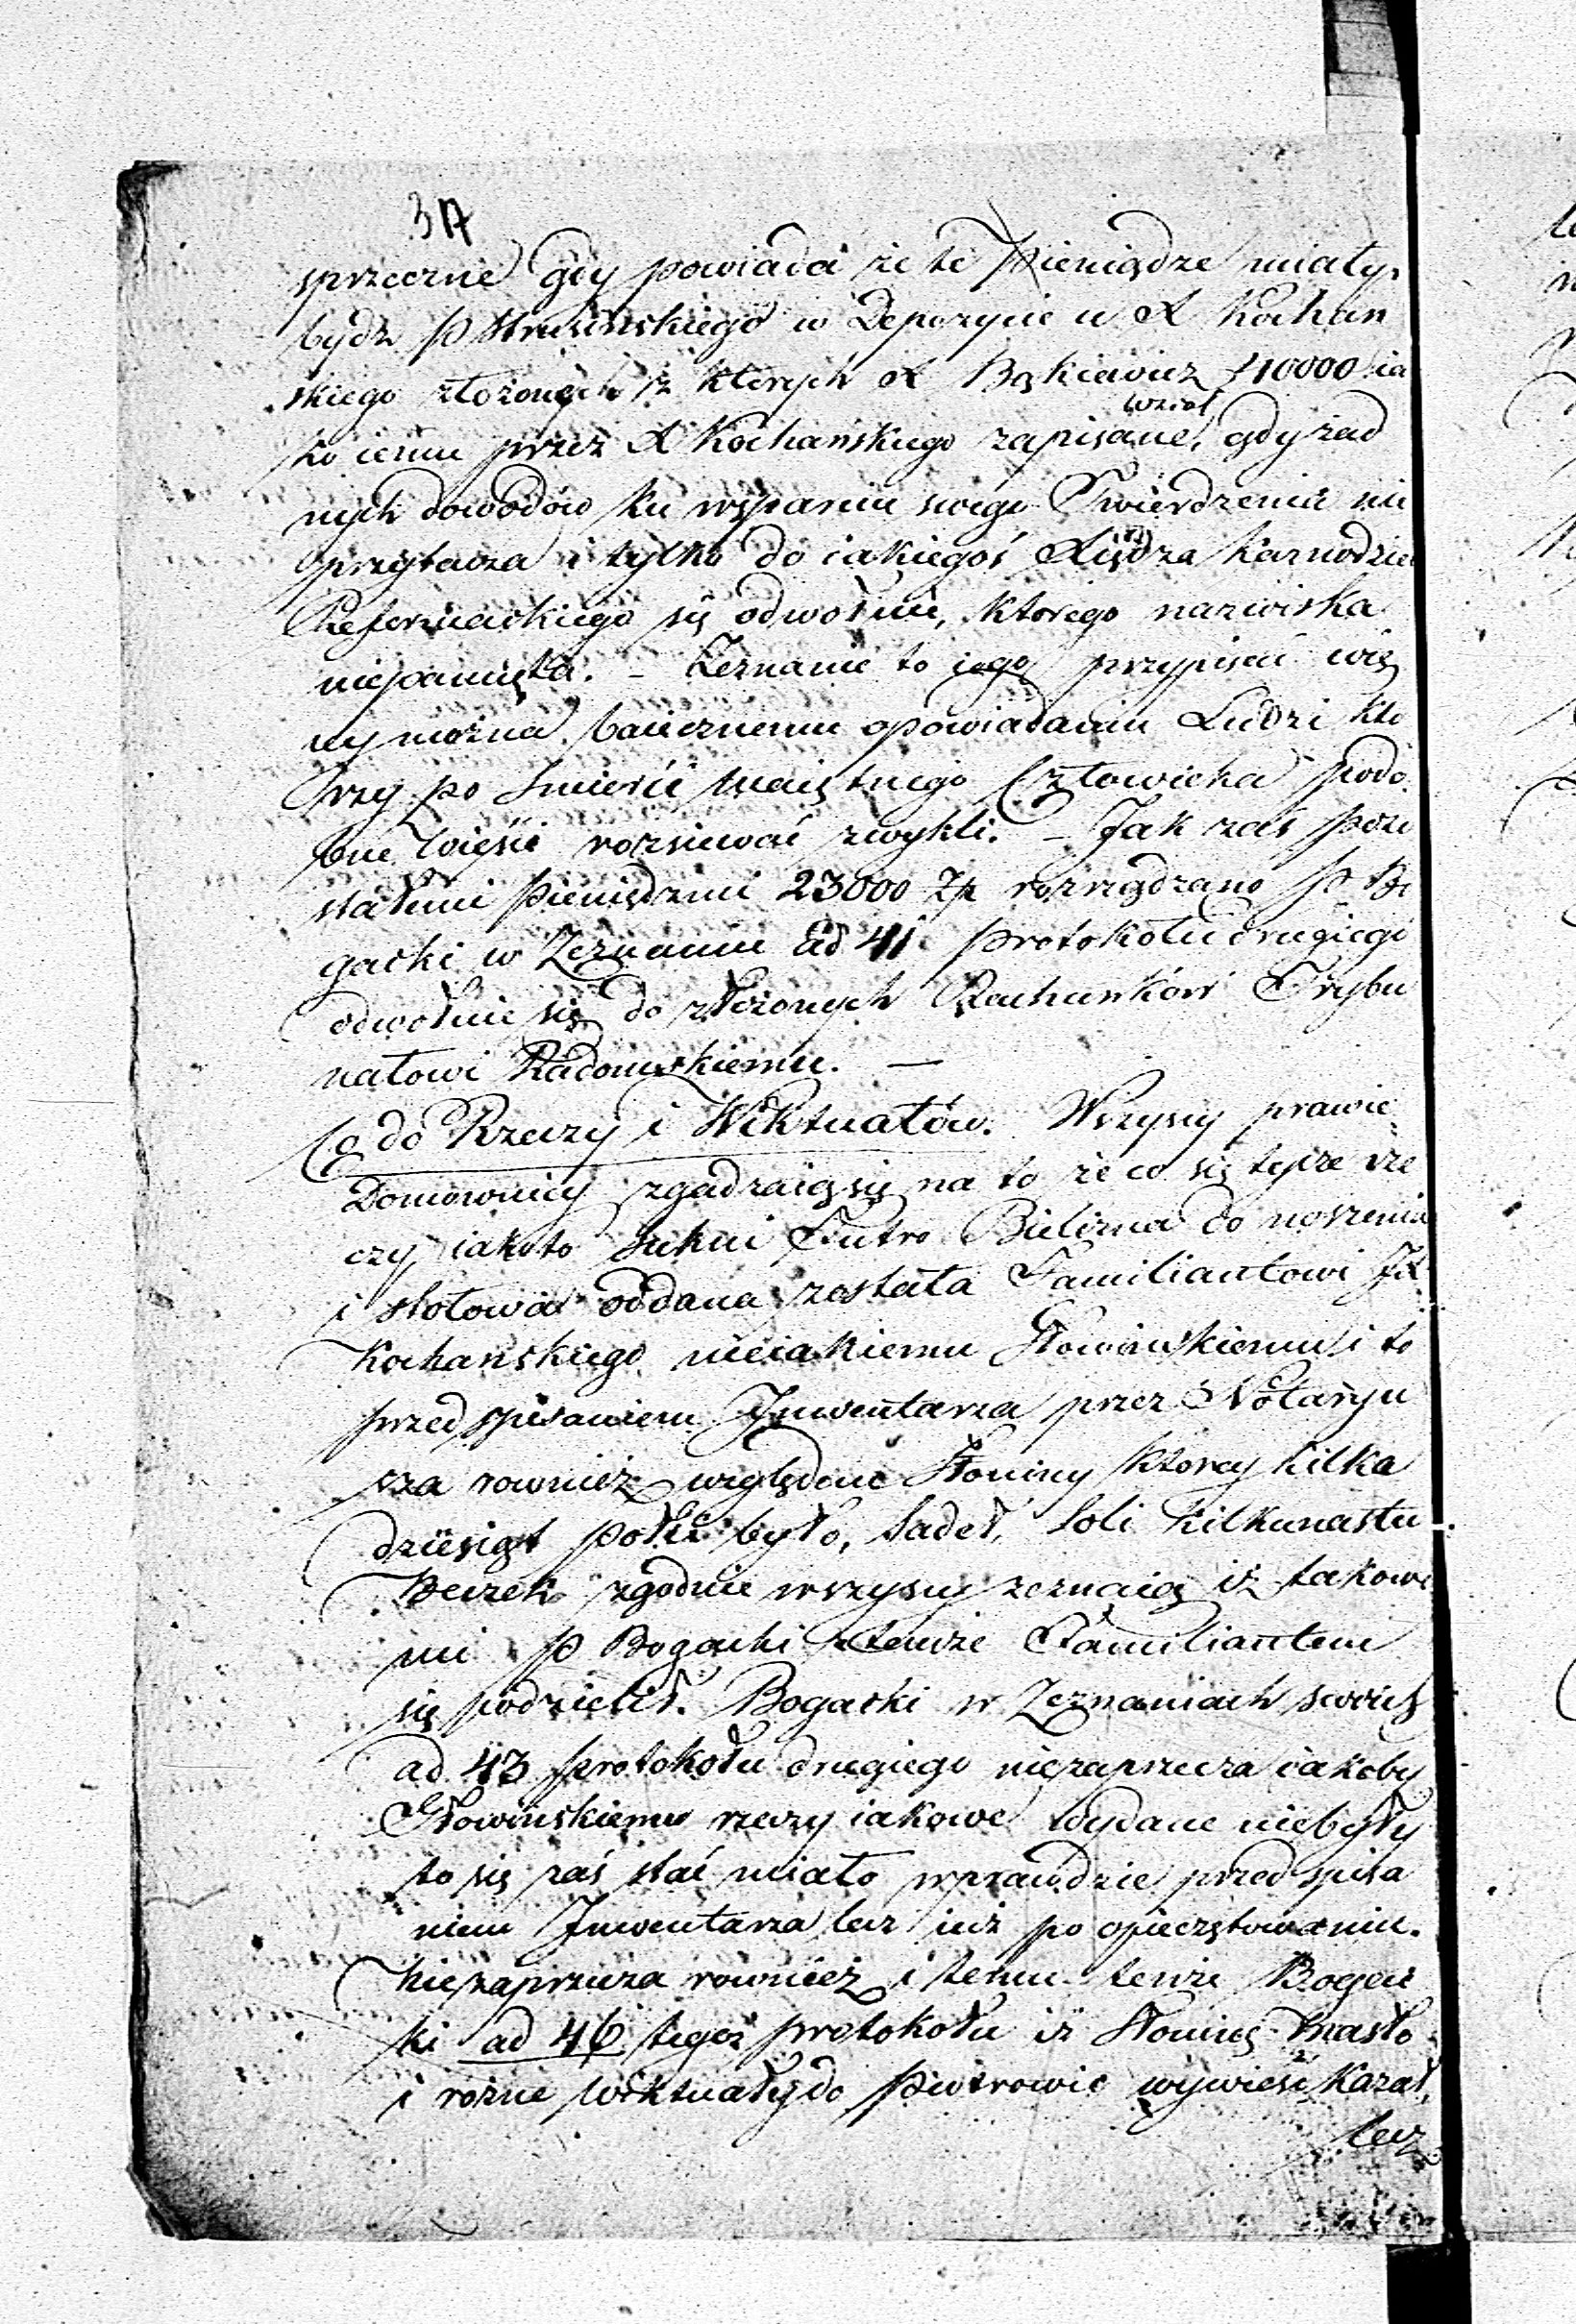 37
sprzecznie gdy powiada że te Pieniądze miały
bydz P. w Depozycie u X Kochan
skiego złożonych z których X Bąkiewicz 110000 ia
ko iemu przez X Kochanskiego zapisane wziął, gdy zad
nych dowodow ku wsparciu swego Twierdzenia nie
przytacza i tylko do iakiegoś Xiędza Kaznodziei
Reformackiego się odwołuie, ktorego nazwiska
niepamięta. – Zeznanie to iego przypisać więc
ny można baiecznemu opowiadaniu Ludzi kto
rzy po Smierci maiętnego Człowieka podo
bne wieści rozsiewać zwykli. – Jak zaś pozo
stałemi Pieniędzmi 23000 Zp rozrządzano P. Bo
gacki w Zeznaniu ad 41 protokołu drugiego
odwołuie się do złożonych Rachunków Trybu
nałowi Radomskiemu. —
Co do Rzeczy i Wiktuałów. Wszyscy prawie
Domownicy zgadzaią się na to że co się tycze rze
czy iakoto Suknie Futro Bielizna do noszenia
i stołowa oddana została Familiantowi JX
Kochanskiego nieiakiemu Głowinskiemu i to
przed spisaniem Inwentarza przez Notaryu
sza rownież względnie Słoniny ktorey kilka
dziesiąt połci było, Sadeł, Soli kilkunastu
Beczek zgodnie wszyscy zeznaią iż takowe
mi P Bogacki z temże Familiantem
się podzielił. Bogacki w Zeznaniach swoich
ad 43 protokołu drugiego niezaprzecza iakoby
Głowinskiemu rzeczy iakowe wydane niebyły
to się zaś stać miało wprawdzie przed spisa
niem Inwentarza lecz iuż po opieczętowaniu.
Niezaprzecza rownież i temu tenże Bogac
ki ad 46 tegoż protokołu iż Słoninę Masło
i rożne wiktuały do Piotrowic wywieść kazał,
lecz